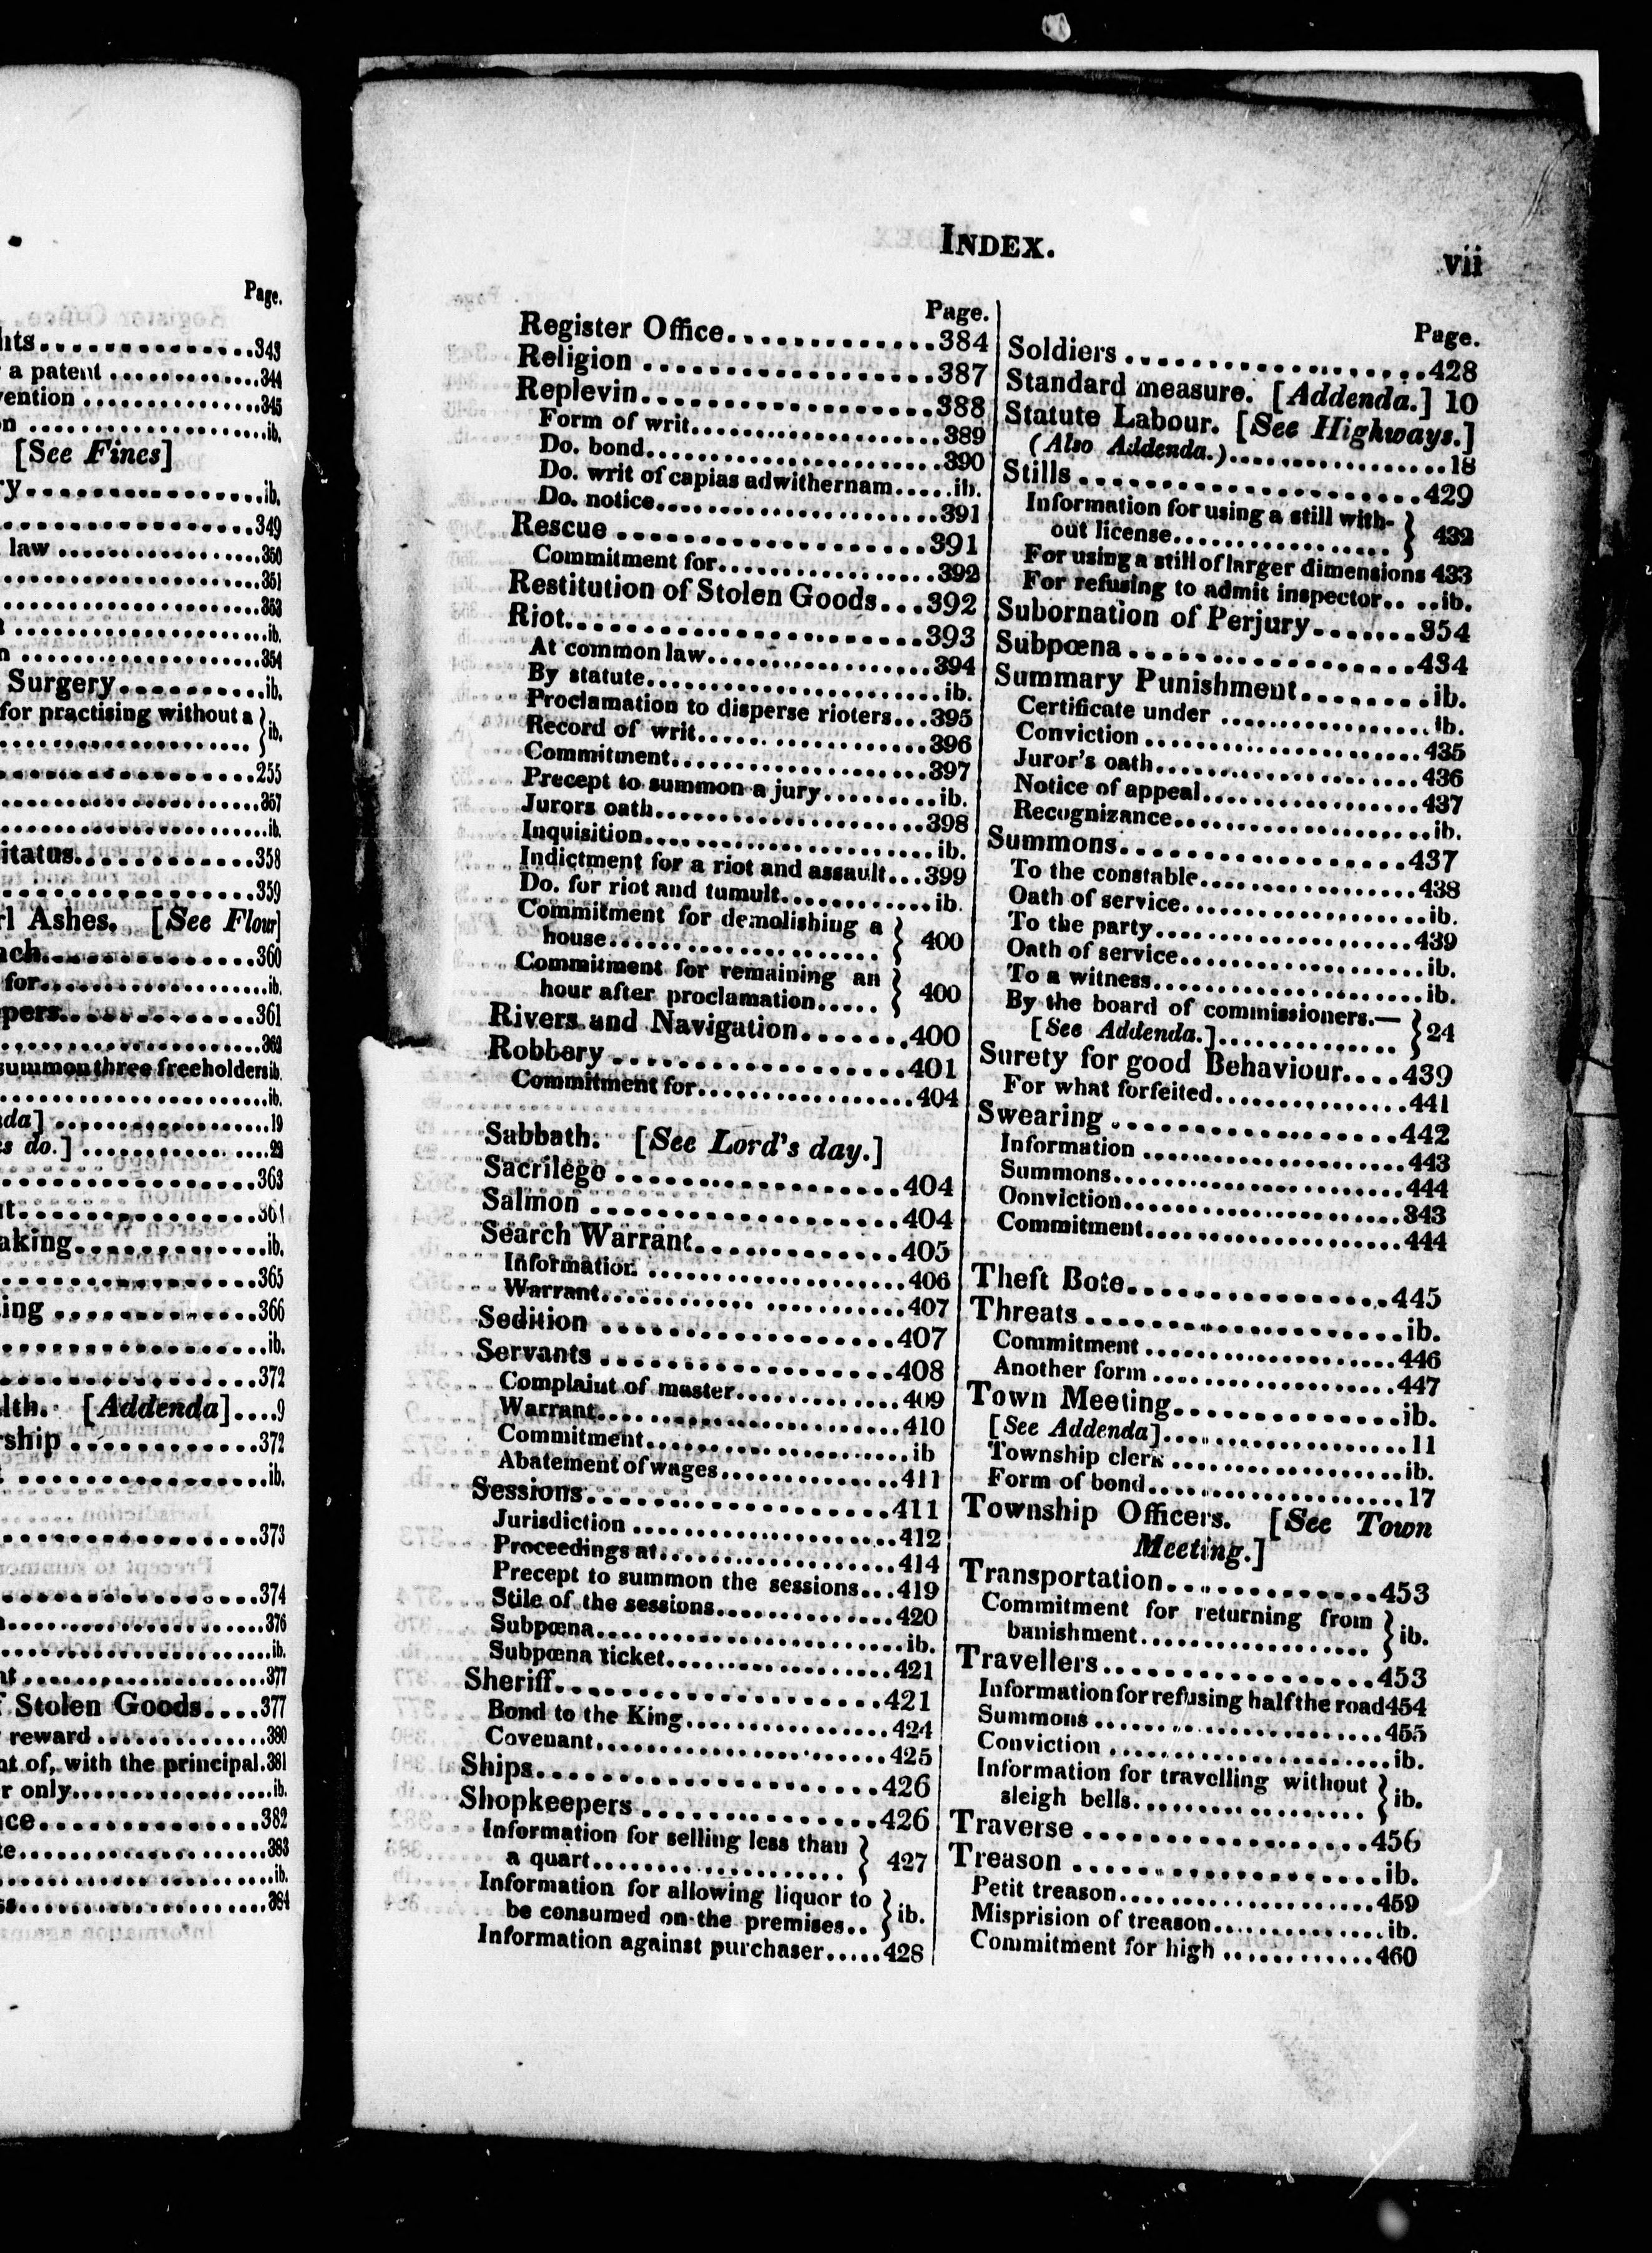 Page.
hts..............343
a patent.............344
vention..............345
n....................ib.
[See Fines]
ry................ib.
................349
law................350
....................351
....................353
....................ib.
n...................354
Surgery..........ib.
for practising without a }
.................... } ib.
................255
....................357
....................ib.
itatus............358
................359
rl Ashes. [See Flour]
ach..............360
for..................ib.
pers.............361
....................363
summon three freeholders ib.
....................ib.
nda]................19
s do.]..............29
................363
t................364
aking............ib.
................365
ing............366
................ib.
................372
lth. [Addenda]....9
rship............372
................ib.
................373
................374
....................376
....................ib.
nt..................377
f Stolen Goods....377
reward.............380
nt of, with the principal.381
r only................ib.
ce..............382
te..................383
....................ib.
ss..................384
INDEX.
vii
Page.
Register Office.............384
Religion ..................387
Replevin..................388
Form of writ...................389
Do. bond......................390
Do. writ of capias adwithernam.....ib.
Do. notice.....................391
Rescue ..................391
Commitment for................392
Restitution of Stolen Goods...392
Riot.....................393
At common law................394
By statute.....................ib.
Proclamation to disperse rioters...395
Record of writ.................396
Commitment..................397
Precept to summon a jury.........ib.
Jurors oath...................398
Inquisition.....................ib.
Indictment for a riot and assault...399
Do. for riot and tumult............ib.
Commitment for demolishing a }
house.................... } 400
Commitment for remaining an }
hour after proclamation..... } 400
Rivers and Navigation.......400
Robbery..................401
Commitment for................404
Sabbath. [See Lord's day.]
Sacrilege ..................404
Salmon ..................404
Search Warrant.............405
Information ...................406
Warrant.......................407
Sedition ..................407
Servants ..................408
Complaint of master............409
Warrant......................410
Commitment....................ib
Abatement of wages.............411
Sessions..................411
Jurisdiction ...................412
Proceedings at.................414
Precept to summon the sessions...419
Stile of the sessions.............420
Subpœna......................ib.
Subpœna ticket.................421
Sheriff....................421
Bond to the King...............424
Covenant.....................425
Ships.....................426
Shopkeepers ...............426
Information for selling less than }
a quart................... } 427
Information for allowing liquor to }
be consumed on the premises.. } ib.
Information against purchaser.....428
Page.
Soldiers ..................428
Standard measure. [Addenda.] 10
Statute Labour. [See Highways.]
(Also Addenda.)................18
Stills.....................429
Information for using a still with- }
out license................. } 432
For using a still of larger dimensions 433
For refusing to admit inspector.. ..ib.
Subornation of Perjury.......354
Subpœna..................434
Summary Punishment........ib.
Certificate under ................ib.
Conviction ....................435
Juror's oath....................436
Notice of appeal................437
Recognizance...................ib.
Summons..................437
To the constable................438
Oath of service..................ib.
To the party...................439
Oath of service..................ib.
To a witness....................ib.
By the board of commissioners.— }
[See Addenda.].............. } 24
Surety for good Behaviour....439
For what forfeited...............441
Swearing..................442
Information ...................443
Summons.....................444
Oonviction.....................343
Commitment...................444
Theft Bote.................445
Threats ..................ib.
Commitment ..................446
Another form ..................447
Town Meeting..............ib.
[See Addenda]..................11
Township clerk .................ib.
Form of bond...................17
Township Officers. [See Town
Meeting.]
Transportation.............453
Commitment for returning from }
banishment................. } ib.
Travellers..................453
Information for refusing half the road 454
Summons .....................455
Conviction .....................ib.
Information for travelling without }
sleigh bells................. } ib.
Traverse ..................456
Treason ..................ib.
Petit treason...................459
Misprision of treason.............ib.
Commitment for high ............460